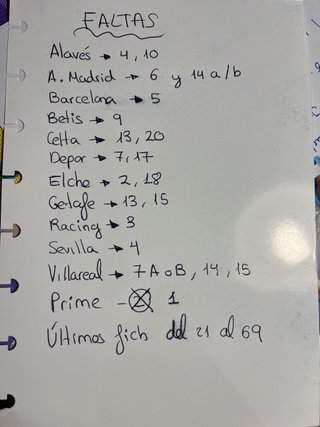 FALTAS
Alavés → 4, 10
A. Madrid → 6 y 14 a/b
Barcelona → 5
Betis → 9
Celta → 13, 20
Depor → 7, 17
Elche → 2, 18
Getafe → 13, 15
Racing → 3
Sevilla → 4
Villareal → 7 A o B, 14, 15
Prime - 1
Últimos fich del 21 al 69